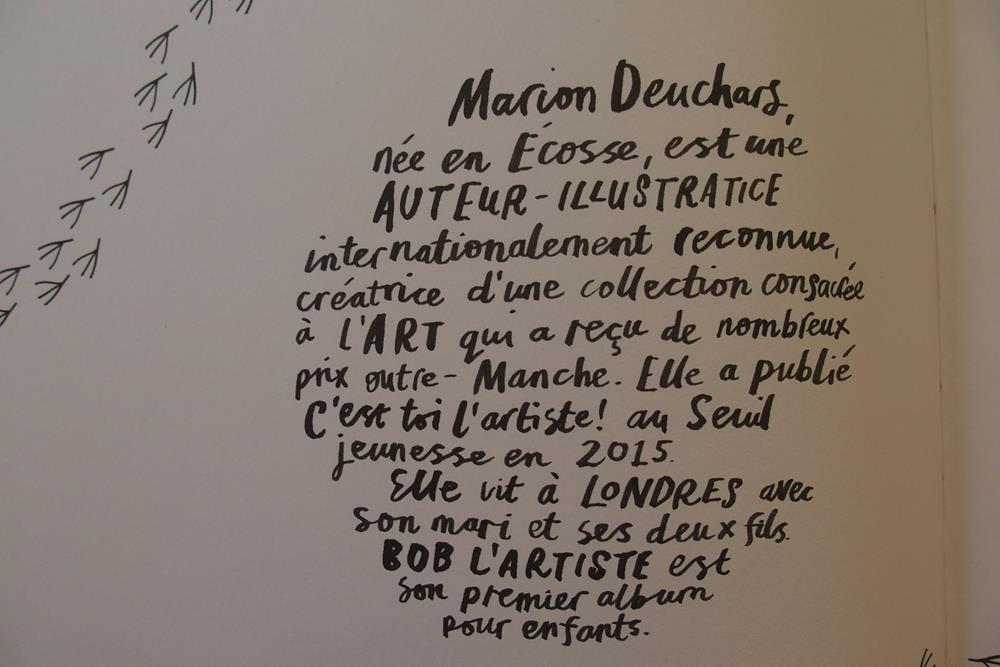 Marion Deuchars,
née en Écosse, est une
AUTEUR-ILLUSTRATICE
internationalement reconnue,
créatrice d'une collection consacrée
à L'ART qui a reçu de nombreux
prix outre-Manche. Elle a publié
C'est toi l'artiste! au Seuil
jeunesse en 2015.
Elle vit à LONDRES avec
son mari et ses deux fils.
BOB L'ARTISTE est
son premier album
pour enfants.